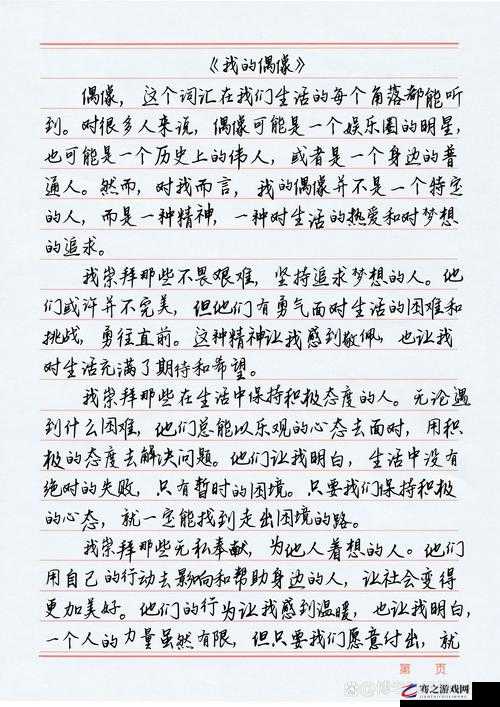 《我的偶像》
偶像，这个词汇在我们生活的每个角落都能听
到。对很多人来说，偶像可能是一个娱乐圈的明星，
也可能是一个历史上的伟人，或者是一个身边的普
通人。然而，对我而言，我的偶像并不是一个特定
的人，而是一种精神，一种对生活的热爱和对梦想
的追求。
我崇拜那些不畏艰难，坚持追求梦想的人。他
们或许并不完美，但他们有勇气面对生活的困难和
挑战，勇往直前。这种精神让我感到敬佩，也让我
对生活充满了期待和希望。
我崇拜那些在生活中保持积极态度的人。无论遇
到什么困难，他们总能以乐观的心态去面对，用积
极的态度去解决问题。他们让我明白，生活中没有
绝对的失败，只有暂时的困境。只要我们保持积极
的心态，就一定能找到走出困境的路。
我崇拜那些无私奉献，为他人着想的人。他们
用自己的行动去影响和帮助身边的人，让社会变得
更加美好。他们的行为让我感到温暖，也让我明白，
一个人的力量虽然有限，但只要我们愿意付出，就
第 页
骞之游戏网